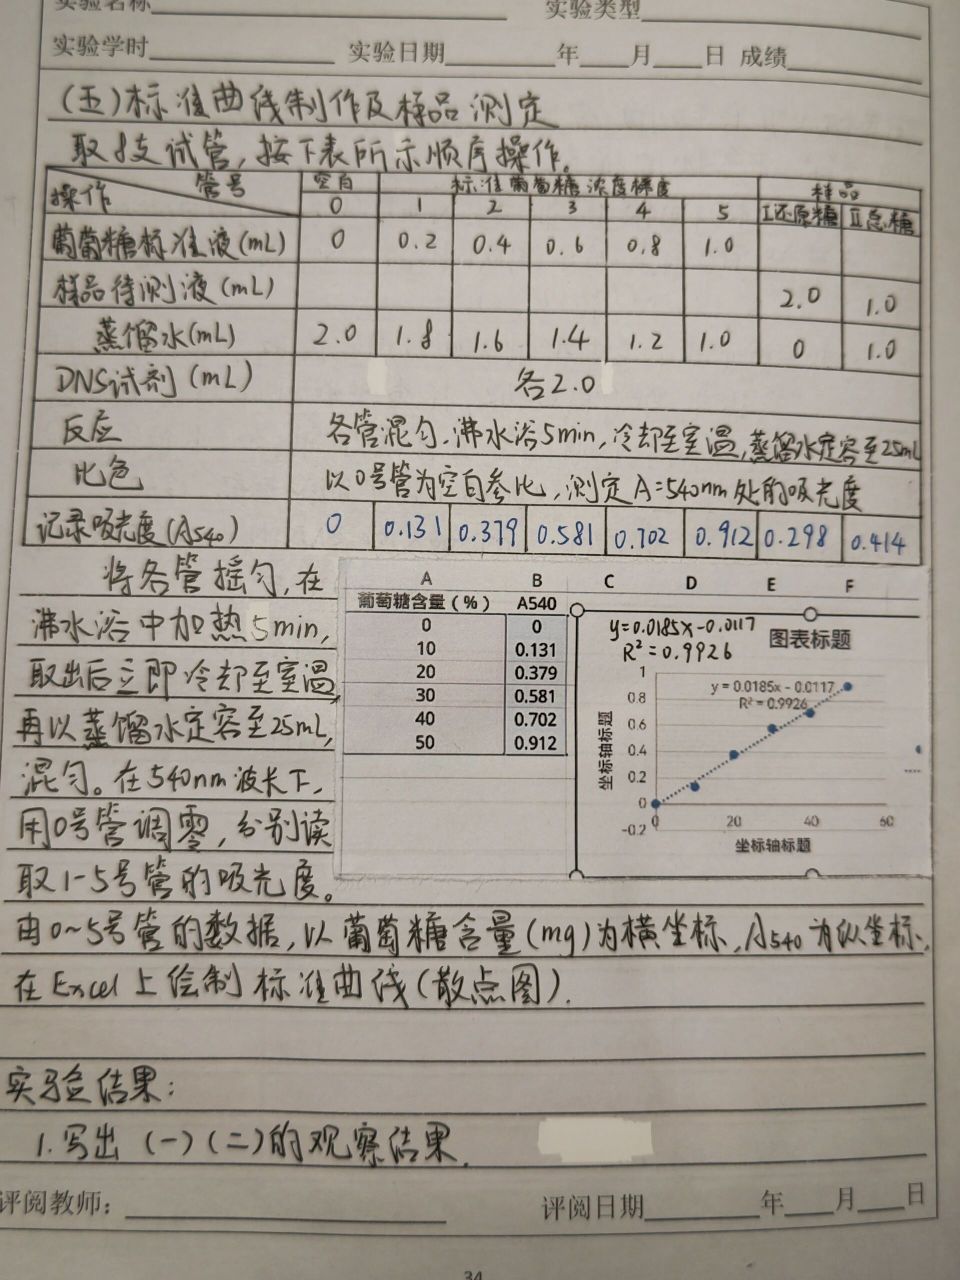 实验名称 实验类型
实验学时 实验日期 年 月 日 成绩
(五)标准曲线制作及样品测定
取8支试管,按下表所示顺序操作。
操作 管号 空白 标准葡萄糖浓度梯度 样品
0 1 2 3 4 5 I还原糖 II总糖
葡萄糖标准液(mL) 0 0.2 0.4 0.6 0.8 1.0
样品待测液(mL) 2.0 1.0
蒸馏水(mL) 2.0 1.8 1.6 1.4 1.2 1.0 0 1.0
DNS试剂(mL) 各2.0
反应 各管混匀.沸水浴5min,冷却至室温,蒸馏水定容至25mL
比色 以0号管为空白参比,测定A=540nm处的吸光度
记录吸光度(A540) 0 0.131 0.379 0.581 0.702 0.912 0.298 0.414
将各管摇匀,在
沸水浴中加热5min,
取出后立即冷却至室温,
再以蒸馏水定容至25mL,
混匀。在540nm波长下,
用0号管调零,分别读
取1-5号管的吸光度。
A B C D E F
葡萄糖含量(%) A540
0 0
10 0.131
20 0.379
30 0.581
40 0.702
50 0.912
y=0.0185x-0.0117
R²=0.9926
图表标题
y = 0.0185x - 0.0117
R² = 0.9926
坐标轴标题
1
0.8
0.6
0.4
0.2
0
-0.2
0 20 40 60
坐标轴标题
由0~5号管的数据,以葡萄糖含量(mg)为横坐标,A540为纵坐标,
在Excel上绘制标准曲线(散点图).
实验结果:
1.写出(一)(二)的观察结果.
评阅教师: 评阅日期 年 月 日
34